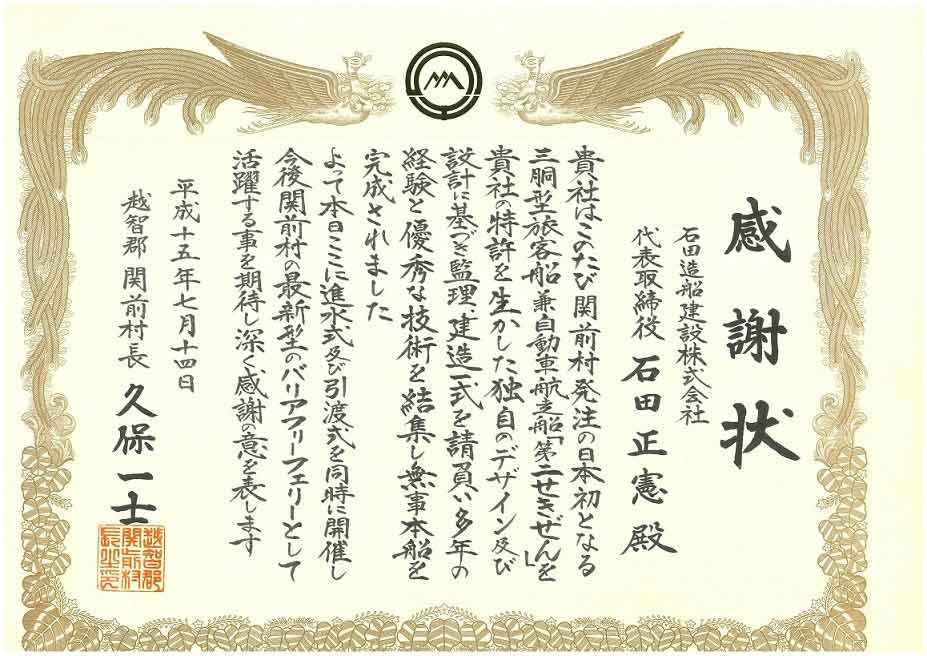 感謝状
石田造船建設株式会社
代表取締役 石田正憲 殿
貴社はこのたび関前村発注の日本初となる
三胴型旅客船兼自動車航走船「第二せきぜん」を
貴社の特許を生かした独自のデザイン及び
設計に基づき監理、建造一式を請負い多年の
経験と優秀な技術を結集し無事本船を
完成されました
よって本日ここに進水式及び引渡式を同時に開催し
今後関前村の最新型のバリアフリーフェリーとして
活躍する事を期待し深く感謝の意を表します
平成十五年七月十四日
越智郡関前村長 久保一士
越智郡
関前村
長之印